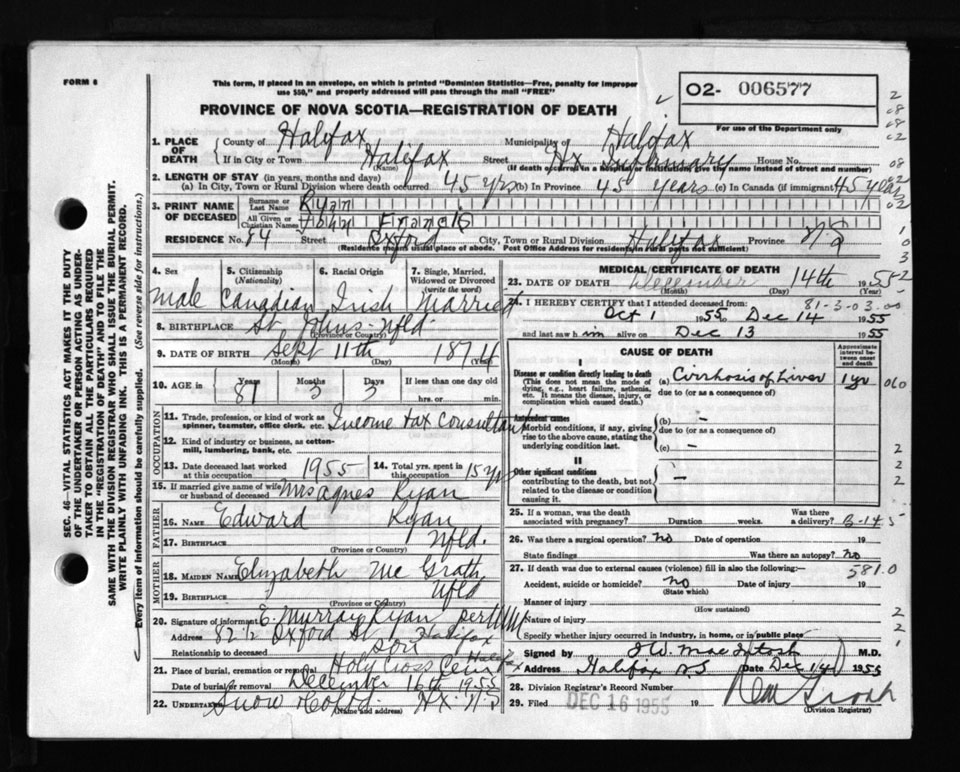 FORM 6
This form, if placed in an envelope, on which is printed "Dominion Statistics—Free, penalty for improper
use $50," and properly addressed will pass through the mail "FREE"
PROVINCE OF NOVA SCOTIA—REGISTRATION OF DEATH
02- 006577
For use of the Department only
SEC. 46—VITAL STATISTICS ACT MAKES IT THE DUTY
OF THE UNDERTAKER OR PERSON ACTING AS UNDER-
TAKER TO OBTAIN ALL THE PARTICULARS REQUIRED
IN THE "REGISTRATION OF DEATH" AND TO FILE THE
SAME WITH THE DIVISION REGISTRAR WHO SHALL ISSUE THE BURIAL PERMIT.
WRITE PLAINLY WITH UNFADING INK. THIS IS A PERMANENT RECORD.
Every item of Information should be carefully supplied. (See reverse side for instructions.)
1. PLACE OF DEATH
County of Halifax Municipality of Halifax
If in City or Town Halifax Street Hx Infirmary House No.
(Name) (If death occurred in a hospital or institution, give the name instead of street and number)
2. LENGTH OF STAY (in years, months and days)
(a) In City, Town or Rural Division where death occurred 45 yrs (b) In Province 45 years (c) In Canada (if immigrant) 45 years
3. PRINT NAME OF DECEASED
Surname or Last Name Ryan
All Given or Christian Names John Francis
RESIDENCE No. 84 Street Oxford City, Town or Rural Division Halifax Province NS
(Residence means usual place of abode. Post Office Address for residents in rural parts not sufficient)
4. Sex Male
5. Citizenship (Nationality) Canadian
6. Racial Origin Irish
7. Single, Married, Widowed or Divorced (write the word) Married
8. BIRTHPLACE St Johns - Nfld
(Province or Country)
9. DATE OF BIRTH Sept 11th 1874
(Month) (Day) (Year)
10. AGE in Years 81 Months 3 Days 3 If less than one day old
hrs. or min.
OCCUPATION
11. Trade, profession, or kind of work as
spinner, teamster, office clerk, etc. Income tax Consultant
12. Kind of industry or business, as cotton-
mill, lumbering, bank, etc.
13. Date deceased last worked at this occupation 1955
14. Total yrs. spent in this occupation 15 yrs
15. If married give name of wife or husband of deceased Mrs Agnes Ryan
FATHER
16. NAME Edward Ryan
17. BIRTHPLACE Nfld.
(Province or Country)
MOTHER
18. MAIDEN NAME Elizabeth Mc Grath
19. BIRTHPLACE Nfld
(Province or Country)
20. Signature of informant E. Murray Ryan per
Address 82 1/2 Oxford St, Halifax
Relationship to deceased Son
21. Place of burial, cremation or removal Holy Cross Cem Halifax
Date of burial or removal December 16th 1955
22. Undertaker Snow Hx. N.S
(Name and address)
MEDICAL CERTIFICATE OF DEATH
23. DATE OF DEATH December 14th 1955
(Month) (Day) (Year)
81-3-03.00
24. I HEREBY CERTIFY that I attended deceased from:
Oct 1 1955 to Dec 14 1955
and last saw him alive on Dec 13 1955
CAUSE OF DEATH
Approximate interval between onset and death
I
Disease or condition directly leading to death
(This does not mean the mode of dying, e.g., heart failure, asthenia, etc. It means the disease, injury, or complication which caused death.)
(a) Cirrhosis of Liver 1 yr
due to (or as a consequence of)
Antecedent causes
Morbid conditions, if any, giving rise to the above cause, stating the underlying condition last.
(b) —
due to (or as a consequence of)
(c) —
II
Other significant conditions
contributing to the death, but not related to the disease or condition causing it.
—
25. If a woman, was the death associated with pregnancy? Duration weeks. Was there a delivery? B-14
26. Was there a surgical operation? No Date of operation 19
State findings Was there an autopsy? No
27. If death was due to external causes (violence) fill in also the following:— 581.0
Accident, suicide or homicide? No Date of injury 19
(State which)
Manner of injury
(How sustained)
Nature of injury
Specify whether injury occurred in industry, in home, or in public place
Signed by MacIntosh M.D.
Address Halifax N.S Date Dec 14 1955
28. Division Registrar's Record Number
29. Filed DEC 16 1955 19
(Division Registrar)